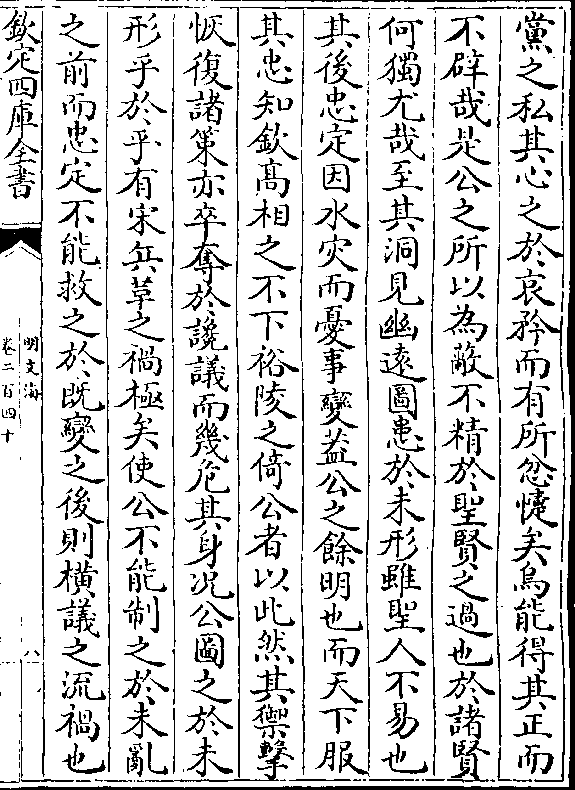 黨之私其心之於哀矜而有所忿懥矣烏能得其正而
不辟哉是公之所以為蔽不精於聖賢之過也於諸賢
何獨尤哉至其洞見幽遠圖患於未形雖聖人不易也
其後忠定因水灾而憂事變葢公之餘明也而天下服
其忠知欽髙相之不下裕陵之倚公者以此然其禦擊
恢復諸策亦卒奪於讒議而幾危其身况公圖之於未
形乎於乎有宋兵草之禍極矣使公不能制之於未亂
之前而忠定不能救之於既變之後則横議之流禍也
欽定四庫全書
明文海
卷二百四十
八